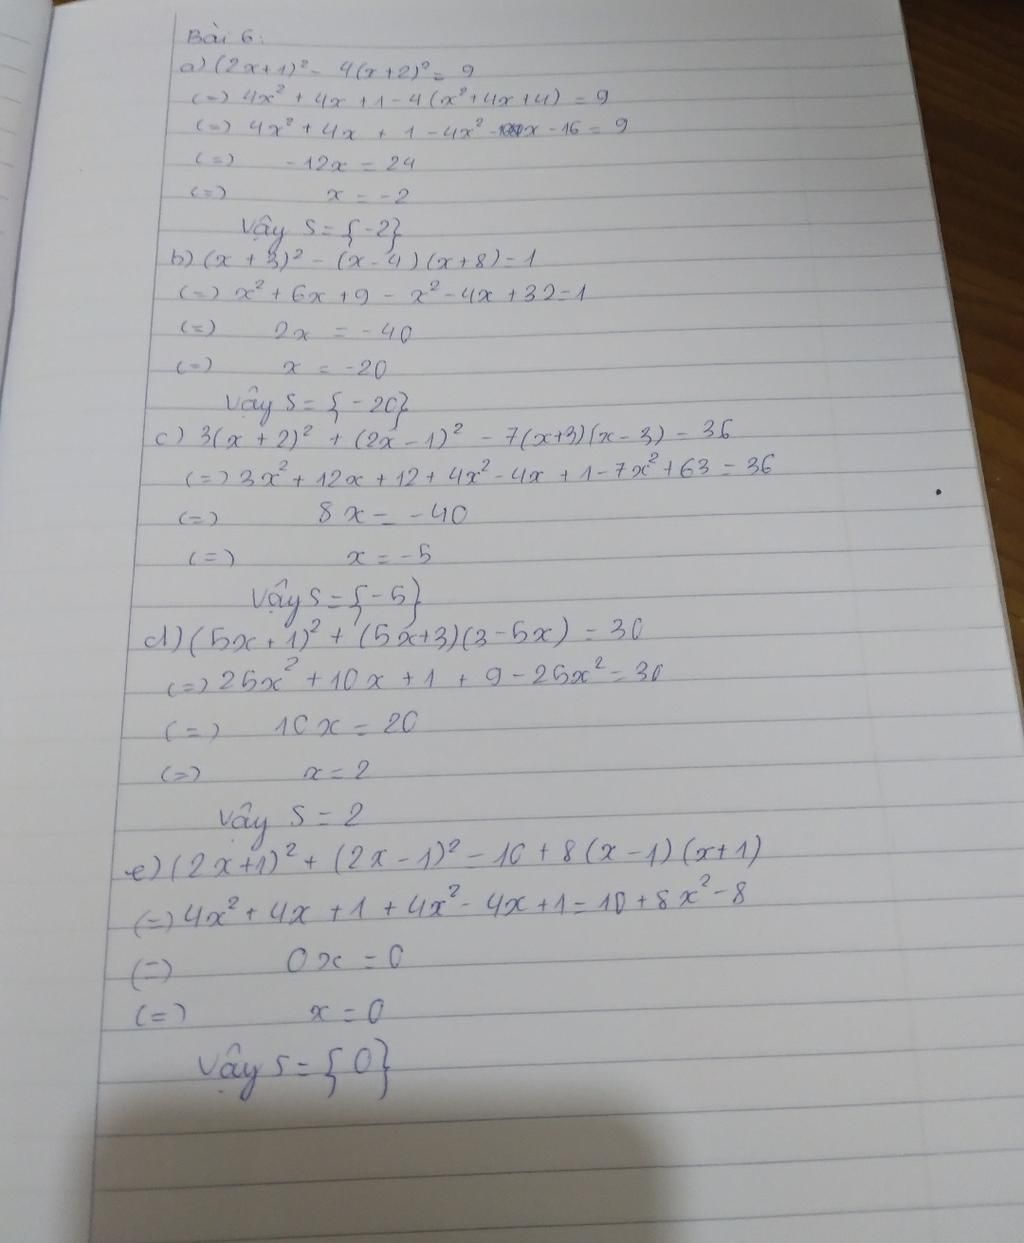 Bài 6:
a) (2x+1)² - 4(x+2)² = 9
(=) 4x² + 4x + 1 - 4(x² + 4x + 4) = 9
(=) 4x² + 4x + 1 - 4x² - x - 16 = 9
(=) -12x = 24
(=) x = -2
Vậy S = {-2}
b) (x + 3)² - (x - 4)(x + 8) = 1
(=) x² + 6x + 9 - x² - 4x + 32 = 1
(=) 2x = -40
(=) x = -20
Vậy S = {-20}
c) 3(x + 2)² + (2x - 1)² - 7(x+3)(x-3) = 36
(=) 3x² + 12x + 12 + 4x² - 4x + 1 - 7x² + 63 = 36
(=) 8x = -40
(=) x = -5
Vậy S = {-5}
d) (5x + 1)² + (5x+3)(3-5x) = 30
(=) 25x² + 10x + 1 + 9 - 25x² = 30
(=) 10x = 20
(=) x = 2
Vậy S = 2
e) (2x+1)² + (2x-1)² = 10 + 8(x-1)(x+1)
(=) 4x² + 4x + 1 + 4x² - 4x + 1 = 10 + 8x² - 8
(=) 0x = 0
(=) x = 0
Vậy S = {0}